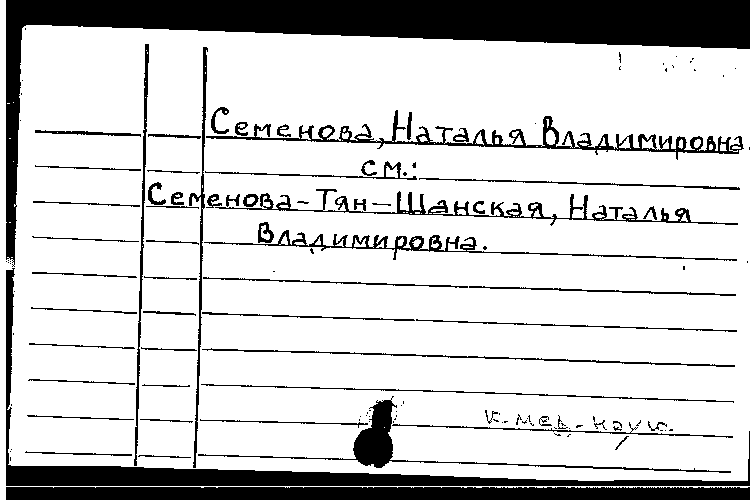 Семенова, Наталья Владимировна.
см.:
Семенова-Тян-Шанская, Наталья
Владимировна.
к. мед. наук.